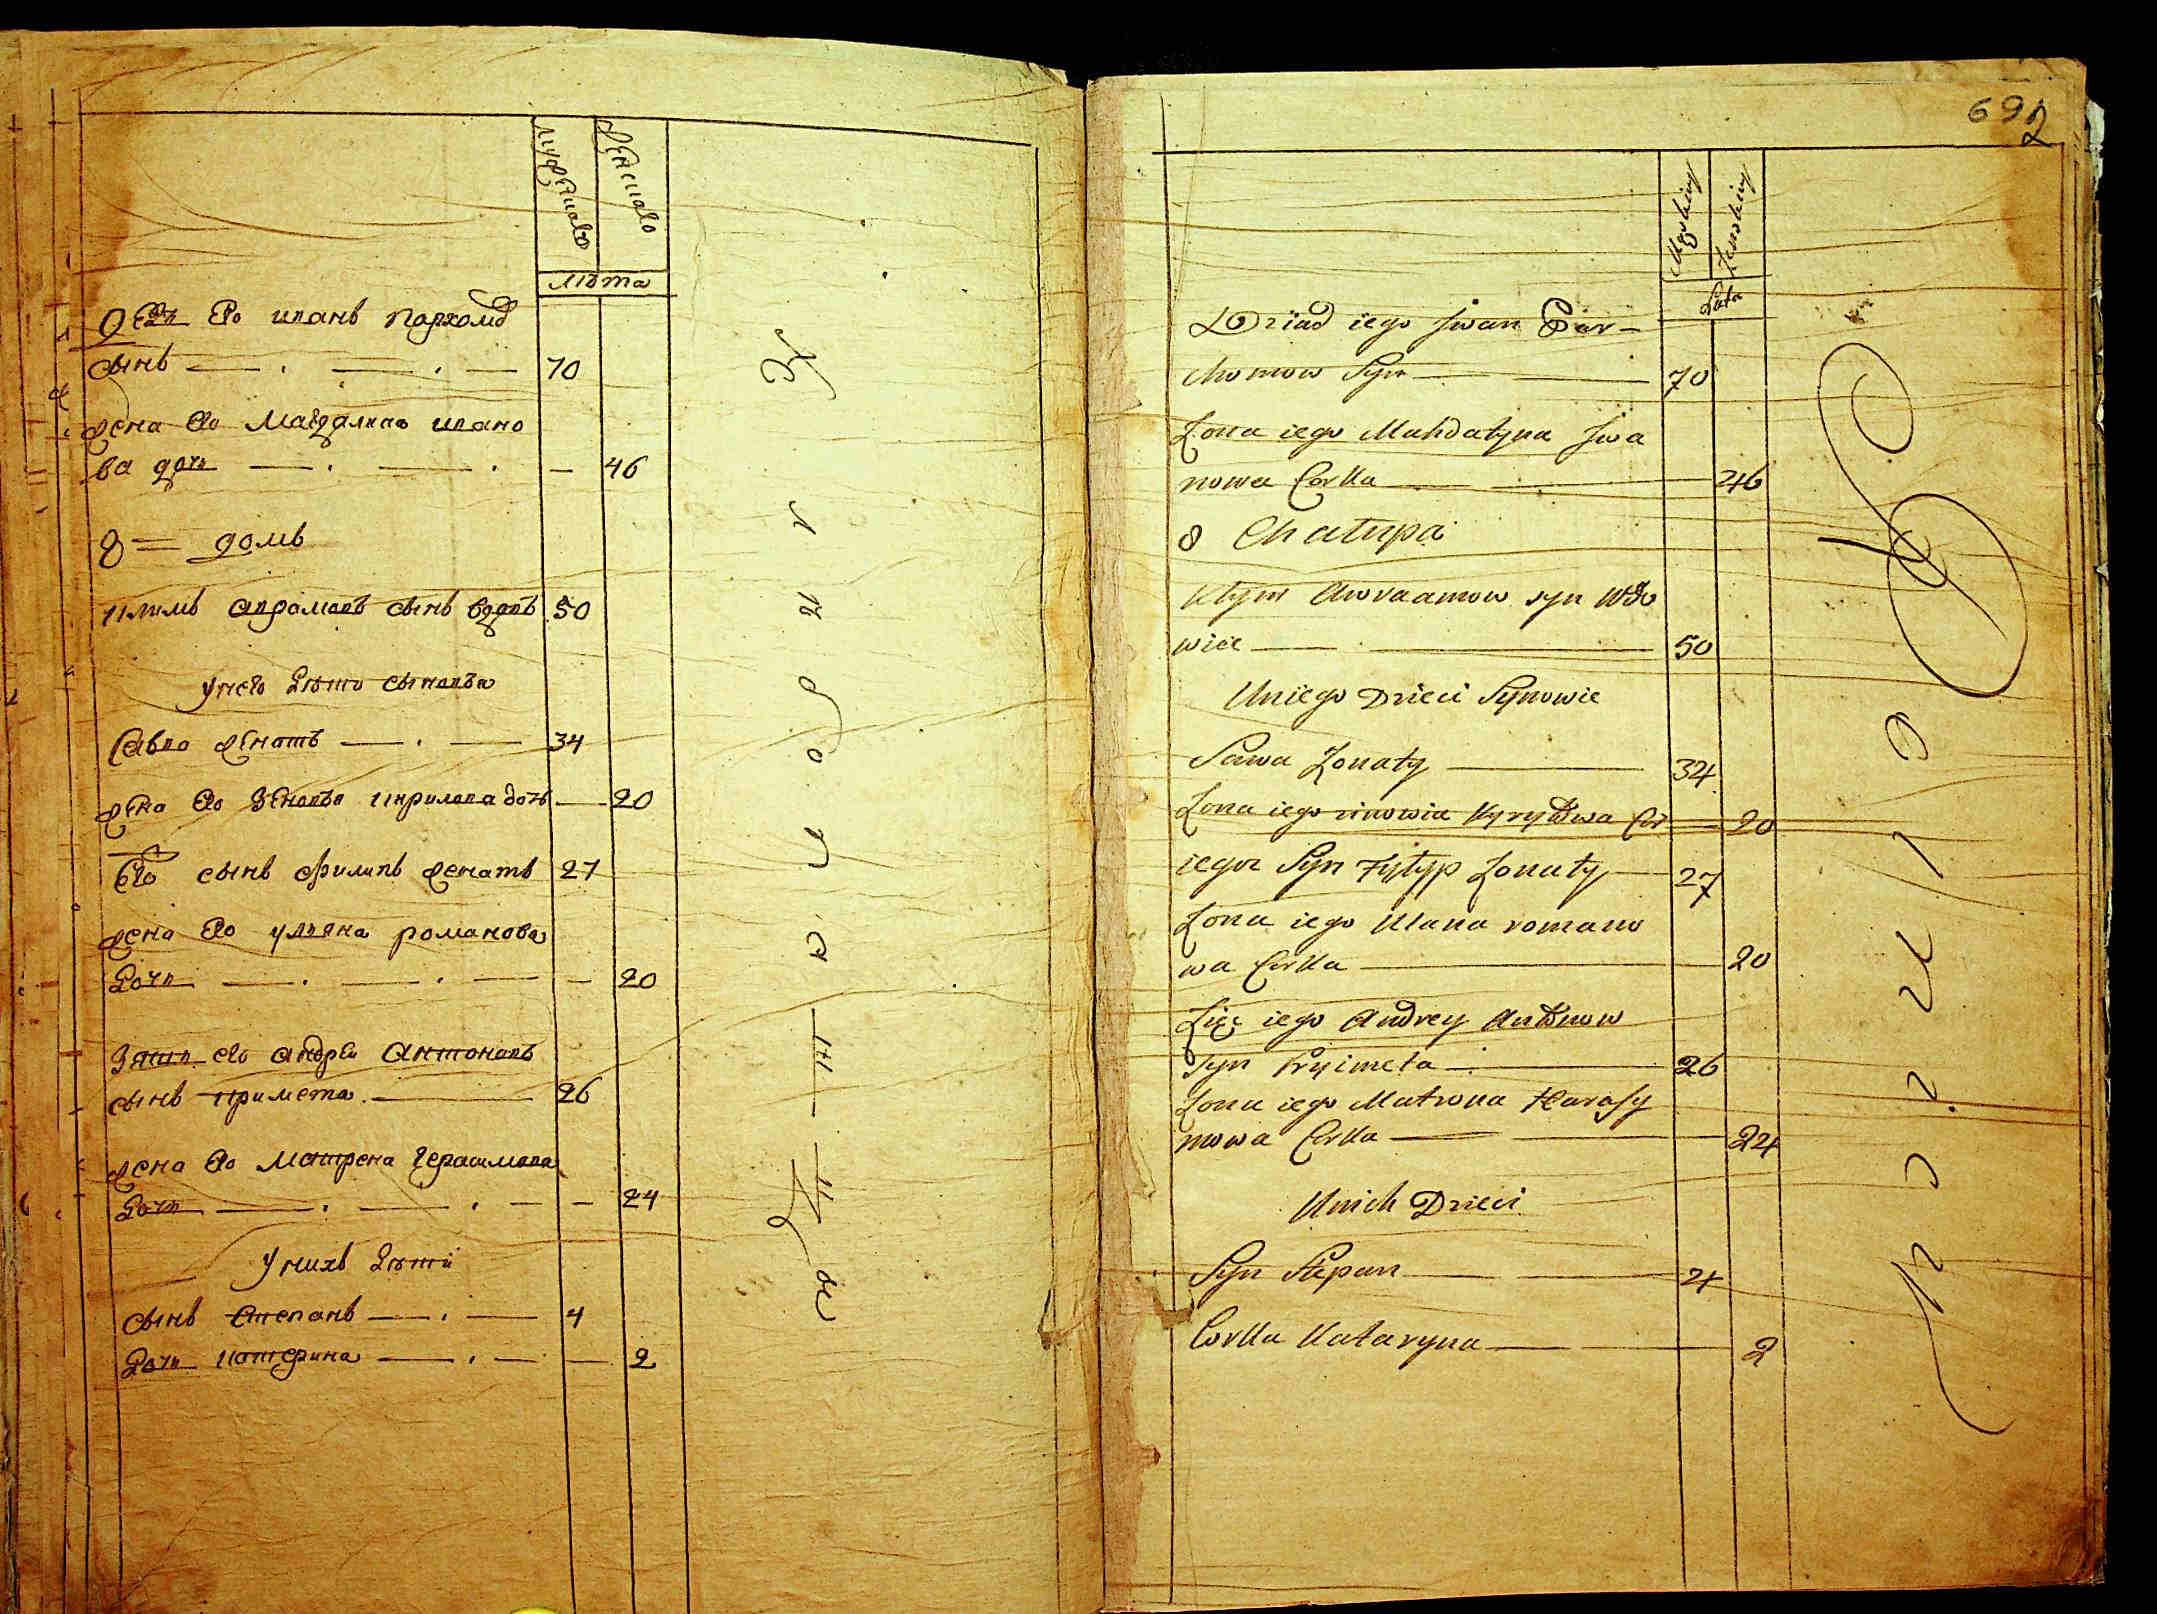 мужеска
женска
лѣта
Дедъ его иванъ пархомо
сынъ 70
жена его магдалина ивано
ва дочь 46
8 домъ
климъ авраамовъ сынъ вдовъ 50
у него дѣти сыновья
Савва женатъ 34
жена его зеновья кирилова дочь 20
Его сынъ филипъ женатъ 27
жена его ульяна романова
дочь 20
Зять его андрей антоновъ
сынъ примета 26
жена его матрена герасимова
дочь 24
у нихъ дѣти
сынъ степанъ 4
дочь катерина 2
692
Męskiey
Zenskiey
Lata
Dziad iego Jwan Par-
chomow Syn 70
Zona iego Mahdalyna Jwa
nowa Corka 46
8 Chalupa
Klym Awraamow syn Wdo
wiec 50
Uniego Dzieci Synowie
Sawa Zonaty 34
Zona iego zinowia Kyryłowa Cor 20
iego Syn Fylyp Zonaty 27
Zona iego Ulana romano
wa Corka 20
Zięc iego Andrey Antonow
Syn Pryimeta 26
Zona iego Matrona Harasy
mowa Corka 24
Unich Dzieci
Syn Stepan 4
Corka Kataryna 2